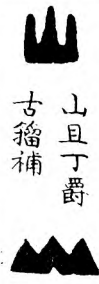 山且丁爵
古籀補